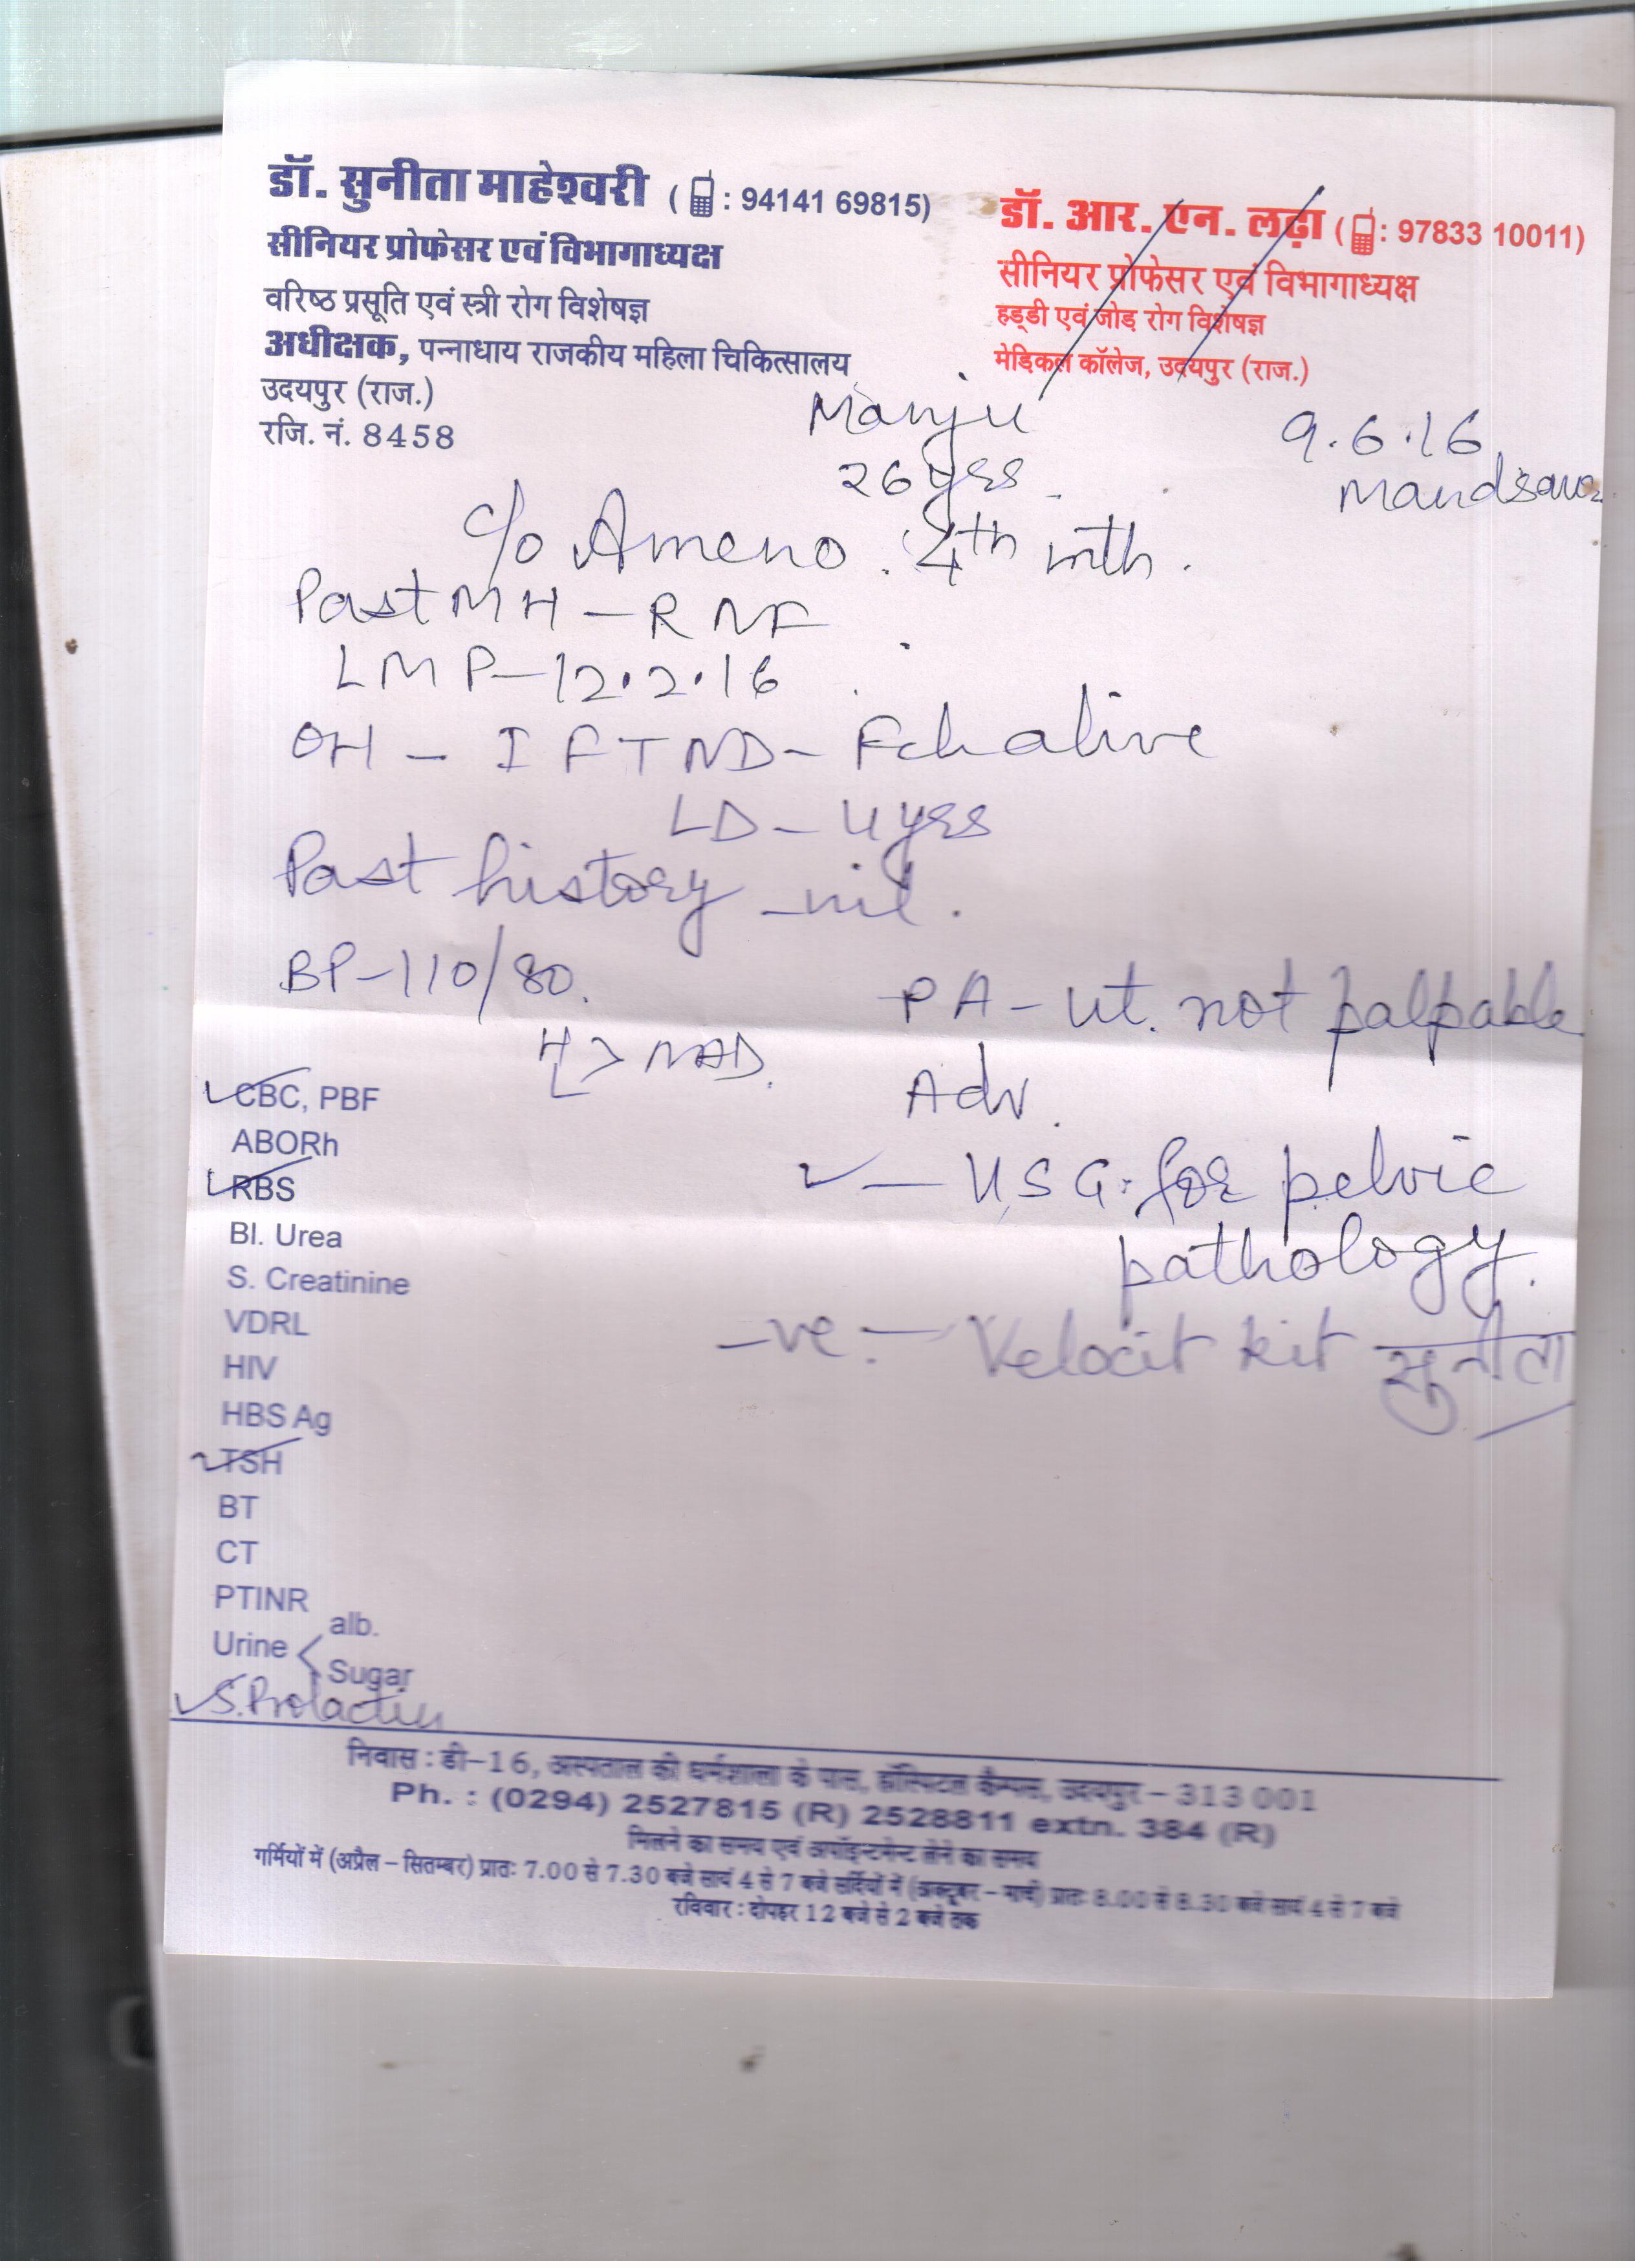 डॉ. सुनीता माहेश्वरी ( : 94141 69815)
सीनियर प्रोफेसर एवं विभागाध्यक्ष
वरिष्ठ प्रसूति एवं स्त्री रोग विशेषज्ञ
अधीक्षक, पन्नाधाय राजकीय महिला चिकित्सालय
उदयपुर (राज.)
रजि. नं. 8458
डॉ. आर. एन. लढ़ा ( : 97833 10011)
सीनियर प्रोफेसर एवं विभागाध्यक्ष
हड्डी एवं जोड़ रोग विशेषज्ञ
मेडिकल कॉलेज, उदयपुर (राज.)
Manju
26 yrs
9.6.16
Mandsaur
c/o Ameno. 4th mth.
Past MH - R NF
LMP - 12.2.16
OH - I FTND - Fch alive
LD - 4 yrs
Past history - nil.
BP - 110/80.
H
L > NAD.
PA - Ut. not palpable
Adv.
- USG. for pelvic
pathology.
-ve. - Velocit kit सुनीता
CBC, PBF
ABORh
RBS
Bl. Urea
S. Creatinine
VDRL
HIV
HBS Ag
TSH
BT
CT
PTINR
Urine < alb.
Sugar
S. Prolactin
निवास : डी-16, अस्पताल की धर्मशाला के पास, हॉस्पिटल कैम्पस, उदयपुर - 313 001
Ph. : (0294) 2527815 (R) 2528811 extn. 384 (R)
मिलने का समय एवं अपॉइन्टमेन्ट लेने का समय
गर्मियों में (अप्रैल - सितम्बर) प्रातः 7.00 से 7.30 बजे सायं 4 से 7 बजे सर्दियों में (अक्टूबर - मार्च) प्रातः 8.00 से 8.30 बजे सायं 4 से 7 बजे
रविवार : दोपहर 12 बजे से 2 बजे तक